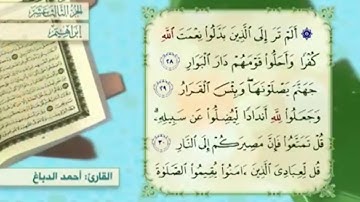 الجزء الثالث عشر
إبراهيم
۞ أَلَمْ تَرَ إِلَى ٱلَّذِينَ بَدَّلُوا۟ نِعْمَتَ ٱللَّهِ
كُفْرًا وَأَحَلُّوا۟ قَوْمَهُمْ دَارَ ٱلْبَوَارِ ٢٨
جَهَنَّمَ يَصْلَوْنَهَا ۖ وَبِئْسَ ٱلْقَرَارُ ٢٩
وَجَعَلُوا۟ لِلَّهِ أَندَادًا لِّيُضِلُّوا۟ عَن سَبِيلِهِۦ ۗ
قُلْ تَمَتَّعُوا۟ فَإِنَّ مَصِيرَكُمْ إِلَى ٱلنَّارِ ٣٠
قُل لِّعِبَادِىَ ٱلَّذِينَ ءَامَنُوا۟ يُقِيمُوا۟ ٱلصَّلَوٰةَ
القارئ: أحمد الدباغ